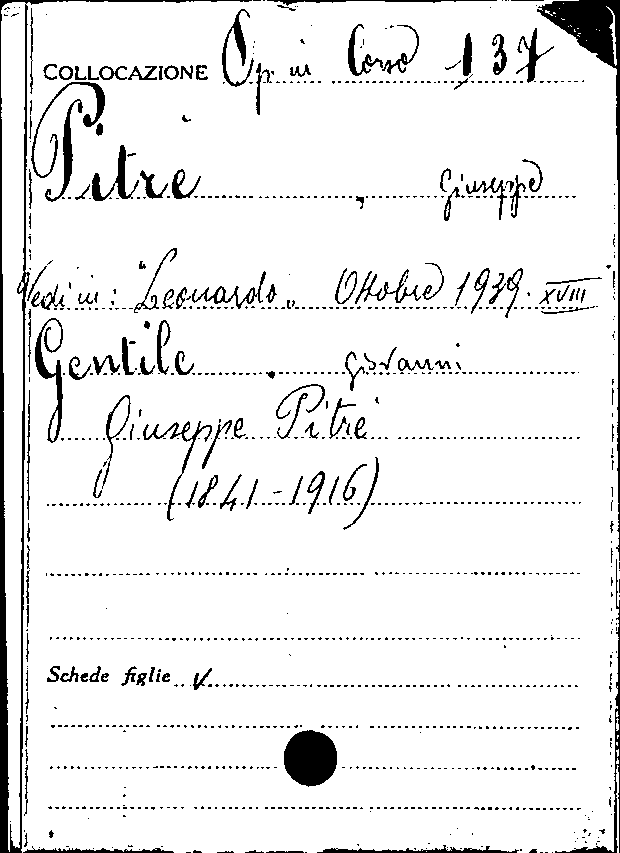 COLLOCAZIONE Op. in Corso 137
Pitrè, Giuseppe
Vedi in: "Leonardo„ Ottobre 1939. XVIII
Gentile, Giovanni
Giuseppe Pitrè
(1841-1916)
Schede figlie V